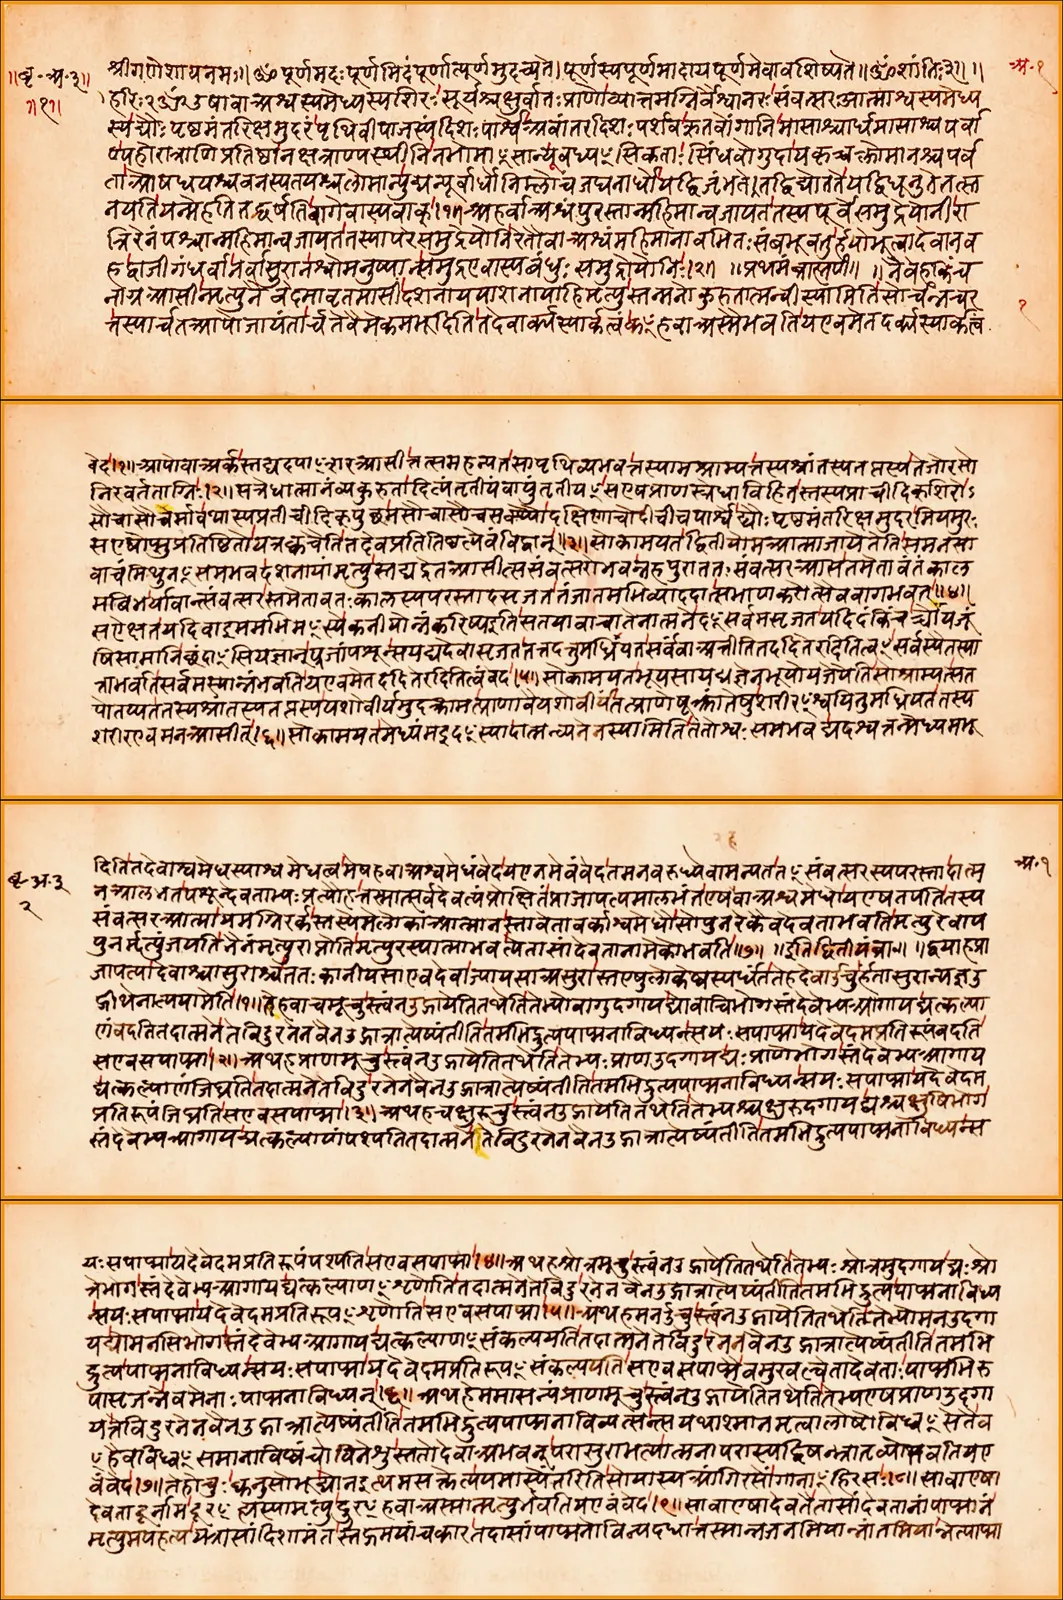 ॥बृ-अ-३॥
॥१॥
अ-१
श्रीगणेशायनमः॥ॐपूर्णमदःपूर्णमिदंपूर्णात्पूर्णमुदच्यते।पूर्णस्यपूर्णमादायपूर्णमेवावशिष्यते॥ॐशांतिः३॥॥
हरिः२ॐ२उषावाअश्वस्यमेध्यस्यशिरःसूर्यश्चक्षुर्वातःप्राणोव्यात्तमग्निर्वैश्वानरःसंवत्सरआत्माश्वस्यमेध्य
स्यद्यौःपृष्ठमंतरिक्षमुदरंपृथिवीपाजस्यंदिशःपार्श्वेअवांतरदिशःपर्शवऋतवोंगानिमासाश्चार्धमासाश्चपर्वा
ण्यहोरात्राणिप्रतिष्ठानक्षत्राण्यस्थीनिनभोमांꣳसान्यूवध्यꣳसिकताःसिंधवोगुदायकृच्चक्लोमानश्चपर्व
ताओषधयश्चवनस्पतयश्चलोमान्युद्यन्पूर्वार्धोनिम्लोचंजघनार्धोयद्विजृंभतेतद्विद्योततेयद्विधूनुतेतत्स्त
नयतियन्मेहतितद्वर्षतिवागेवास्यवाक्॥१॥अहर्वाअश्वंपुरस्तान्महिमान्वजायततस्यपूर्वेसमुद्रेयोनीरा
त्रिरेनंपश्चान्महिमान्वजायततस्यापरेसमुद्रेयोनिरेतौवाअश्वंमहिमानावभितःसंबभूवतुर्हयोभूत्वादेवानव
हद्वाजीगंधर्वानर्वासुरानश्वोमनुष्यान्समुद्रएवास्यबंधुःसमुद्रोयोनिः॥२॥॥प्रथमंब्राह्मणं॥॥नैवेहकिंच
नाग्रआसीन्मृत्युनैवेदमावृतमासीदशनाययाशनायाहिमृत्युस्तन्मनोकुरुतात्मन्वीस्यामितिसोर्चन्नचर
त्तस्यार्चतआपोजायंतार्चतेवैमेकमभूदितितदेवार्क्यस्यार्कत्वंकꣳहवाअस्मैभवतियएवमेतदर्क्यस्यार्कत्वं
१
वेद॥१॥आपोवाअर्कस्तद्यदपाꣳशरआसीत्तत्समहन्यतसापृथिव्यभवत्तस्यामश्राम्यत्तस्यश्रांतस्यतप्तस्यतेजोरसो
निरवर्तताग्निः॥२॥सत्रेधात्मानंव्यकुरुतादित्यंतृतीयंवायुंतृतीयꣳसएषप्राणस्त्रेधाविहितस्तस्यप्राचीदिक्शिरोऽ
सौचासौचेर्मावथास्यप्रतीचीदिक्पुच्छमसौचासौचसक्थ्यौदक्षिणाचोदीचीचपार्श्वेद्यौःपृष्ठमंतरिक्षमुदरमियमुरः
सएषोप्सुप्रतिष्ठितोयत्रक्वचैतितदेवप्रतितिष्ठत्येवंविद्वान्॥३॥सोकामयतद्वितीयोमआत्माजायेतेतिसमनसा
वाचंमिथुनꣳसमभवदशनायांमृत्युस्तद्यद्रेतआसीत्ससंवत्सरोभवन्नहपुराततःसंवत्सरआसतमेतावंतंकाल
मबिभर्यावान्संवत्सरस्तमेतावतःकालस्यपरस्तादसृजततंजातमभिव्याददात्सभाणकरोत्सैववागभवत्॥४॥
सऐक्षतयदिवाइममभिमꣳस्येकनीयोन्नंकरिष्यइतिसतयावाचातेनात्मनेदꣳसर्वमसृजतयदिदंकिंचर्चोयजूं
षिसामानिछंदाꣳसियज्ञान्प्रजांपशून्सयद्यदेवासृजततत्तदत्तुमध्रियतसर्वंवाअत्तीतितददितेरदितित्वꣳसर्वस्यैतस्या
त्ताभवतिसर्वमस्यान्नंभवतियएवमेतददितेरदितित्वंवेद॥५॥सोकामयतभूयसायज्ञेनभूयोयजेयेतिसोश्राम्यत्सत
पोतप्यततस्यश्रांतस्यतप्तस्ययशोवीर्यमुदक्रामत्प्राणावैयशोवीर्यंतत्प्राणेषूत्क्रांतेषुशरीरꣳश्वयितुमध्रियततस्य
शरीरएवमनआसीत्॥६॥सोकामयतमेध्यंमइदꣳस्यादात्मन्व्यनेनस्यामितिततोश्वःसमभवद्यदश्वत्तन्मेध्यमभू
बृ-अ-३
२
अ-१
दितितदेवाश्वमेधस्याश्वमेधत्वमेषहवाअश्वमेधंवेदयएनमेवंवेदतमनवरुध्यैवामन्यततꣳसंवत्सरस्यपरस्तादात्म
नआलभतपशून्देवताभ्यःप्रत्यौहत्तस्मात्सर्वदेवत्यंप्रोक्षितंप्राजापत्यमालभंतएषवाअश्वमेधोयएषतपतितस्य
संवत्सरआत्मायमग्निरर्कस्तस्येमेलोकाआत्मानस्तावेतावर्काश्वमेधौसोपुनरेकैवदेवताभवतिमृत्युरेवाप
पुनर्मृत्युंजयतिनैनंमृत्युराप्नोतिमृत्युरस्यात्माभवत्येतासांदेवतानामेकोभवति॥७॥॥इतिद्वितीयंब्रा॰॥॥द्वयाहप्रा
जापत्यादेवाश्चासुराश्चततःकानीयसाएवदेवाज्यायसाअसुरास्तएषुलोकेष्वस्पर्धंततेहदेवाऊचुर्हंतासुरान्यज्ञउ
द्गीथेनात्ययामेति॥१॥तेहवाचमूचुस्त्वंनउद्गायेतितथेतितेभ्योवागुदगायद्योवाचिभोगस्तंदेवेभ्यआगायद्यत्कल्या
णंवदतितदात्मनेतेविदुरनेनवैनउद्गात्रात्येष्यंतीतितमभिद्रुत्यपाप्मनाविध्यन्सयःसपाप्मायदेवेदमप्रतिरूपंवदति
सएवसपाप्मा॥२॥अथहप्राणमूचुस्त्वंनउद्गायेतितथेतितेभ्यःप्राणउदगायद्यःप्राणेभोगस्तंदेवेभ्यआगाय
द्यत्कल्याणंजिघ्रतितदात्मनेतेविदुरनेनवैनउद्गात्रात्येष्यंतीतितमभिद्रुत्यपाप्मनाविध्यन्सयःसपाप्मायदेवेदम
प्रतिरूपंजिघ्रतिसएवसपाप्मा॥३॥अथहचक्षुरूचुस्त्वंनउद्गायेतितथेतितेभ्यश्चक्षुरुदगायद्यश्चक्षुषिभोग
स्तंदेवेभ्यआगायद्यत्कल्याणंपश्यतितदात्मनेतेविदुरनेनवैनउद्गात्रात्येष्यंतीतितमभिद्रुत्यपाप्मनाविध्यन्स
यःसपाप्मायदेवेदमप्रतिरूपंपश्यतिसएवसपाप्मा॥४॥अथहश्रोत्रमूचुस्त्वंनउद्गायेतितथेतितेभ्यःश्रोत्रमुदगायद्यःश्रो
त्रेभोगस्तंदेवेभ्यआगायद्यत्कल्याणꣳशृणोतितदात्मनेतेविदुरनेनवैनउद्गात्रात्येष्यंतीतितमभिद्रुत्यपाप्मनाविध्य
न्सयःसपाप्मायदेवेदमप्रतिरूपꣳशृणोतिसएवसपाप्मा॥५॥अथहमनऊचुस्त्वंनउद्गायेतितथेतितेभ्योमनउदगा
यद्योमनसिभोगस्तंदेवेभ्यआगायद्यत्कल्याणꣳसंकल्पयतितदात्मनेतेविदुरनेनवैनउद्गात्रात्येष्यंतीतितमभि
द्रुत्यपाप्मनाविध्यन्सयःसपाप्मायदेवेदमप्रतिरूपꣳसंकल्पयतिसएवसपाप्मैवमुखल्वेतादेवताःपाप्मभिरु
पासृजन्नेवमेनाःपाप्मनाविध्यन्॥६॥अथहेममासन्यंप्राणमूचुस्त्वंनउद्गायेतितथेतितेभ्यएषप्राणउदगा
यत्तेविदुरनेनवैनउद्गात्रात्येष्यंतीतितमभिद्रुत्यपाप्मनाविव्यत्सन्सयथाश्मानमृत्वालोष्टोविध्वꣳसेतैव
ꣳहैवविध्वꣳसमानाविष्वंचोविनेशुस्ततोदेवाअभवन्परासुराभवत्यात्मनापरास्यद्विषन्भ्रातृव्योभवतियए
वंवेद॥७॥तेहोचुःक्वनुसोभूद्योनइत्थमसक्तेत्ययमास्येंतरितिसोयास्यआंगिरसोंगानाꣳहिरसः॥८॥सावाएषा
देवतादूर्नामदूरꣳह्यस्यामृत्युर्दूरꣳहवाअस्मान्मृत्युर्भवतियएवंवेद॥९॥सावाएषादेवतैतासांदेवतानांपाप्मानं
मृत्युमपहत्ययत्रासांदिशामंतस्तद्गमयांचकारतदासांपाप्मनोविन्यदधात्तस्मान्नजनमियान्नांतमियान्नेत्पाप्मा